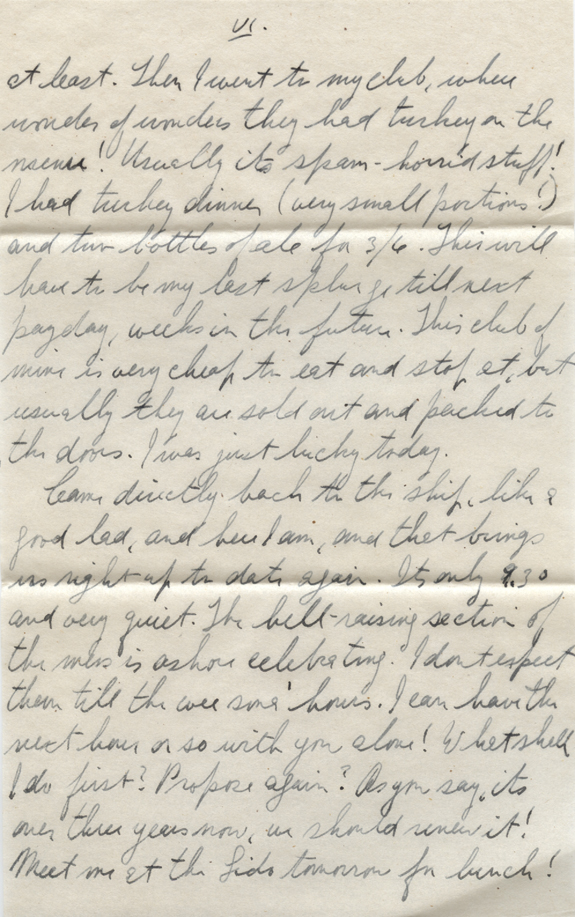 VI.
at least. Then I went to my club, where
wonder of wonders they had turkey on the
menu! Usually its spam - horrid stuff!
I had turkey dinner (very small portions!)
and two bottles of ale for 3/6. This will
have to be my last splurge till next
payday, weeks in the future. This club of
mine is very cheap to eat and stop at, but
usually they are sold out and packed to
the doors. I was just lucky today.
Came directly back to the ship, like a
good lad, and here I am, and that brings
us right up to date again. Its only 9.30
and very quiet. The hell-raising section of
the mess is ashore celebrating. I dont expect
them till the wee sma' hours. I can have the
next hour or so with you alone! What shall
I do first? Propose again? As you say, its
over three years now, we should renew it!
Meet me at the Lido tomorrow for lunch!